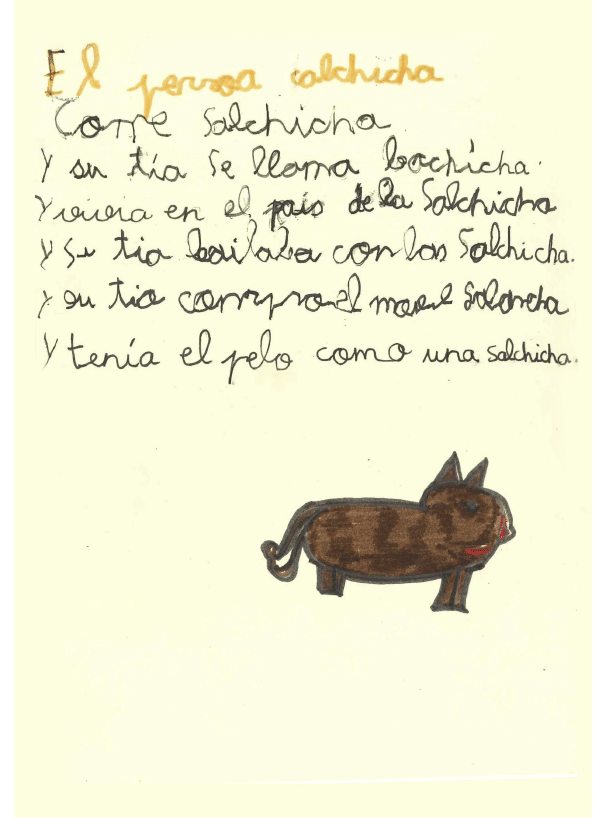 El perroa salchicha
Come Salchicha
y su tía se llama bochicha.
y vivia en el país de la Salchicha
y su tia bailaba con las Salchicha.
y su tia compro el
y tenía el pelo como una salchicha.